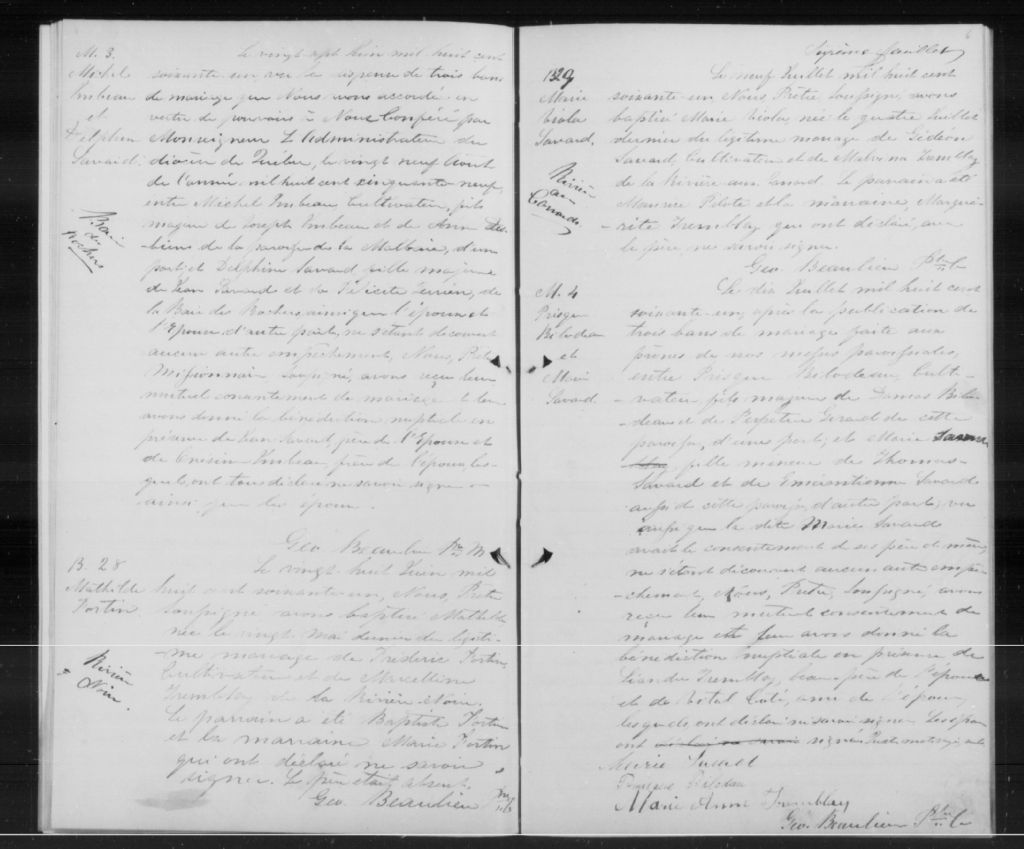 M. 3.
Michel
Imbeau
et
Delphine
Savard.
Baie
des
Rochers
Le vingt sept Juin mil huit cent
soixante-un vu la dispense de trois bans
de mariage que Nous avons accordée en
vertu de pouvoirs à Nous Conféré par
Monseigneur L'Administrateur du
diocèse de Québec, le vingt neuf Aout
de l'année mil huit cent cinquante neuf,
entre Michel Imbeau Cultivateur, fils
majeur de Joseph Imbeau et de Ann Des-
biens de la paroisse de la Malbaie, d'une
part, et Delphine Savard, fille majeure
de Jean Savard et de Félicité Terrien, de
la Baie des Rochers ainsi que l'époux et
l'Epouse d'autre part, ne s'étant découvert
aucun autre empêchement, Nous, Prêtre
Missionnaire soussigné, avons reçu leur
mutuel consentement de mariage et leur
avons donné la bénédiction nuptiale en
présence de Jean Savard, père de l'Epouse et
de Imbeau, frère de l'époux les-
quels ont tous déclaré ne savoir signer
ainsi que les époux.
Geo. Beaulieu Ptre M
B. 28
Mathilde
Fortin
Rivière
Noire.
Le vingt huit Juin mil
huit cent soixante-un, Nous, Prêtre
soussigné avons baptisé Mathilde
née le vingt Mai dernier du légiti-
me mariage de Fréderic Fortin,
Cultivateur et de Marcelline
Tremblay de la Rivière Noire.
Le parrain a été Baptiste Fortin
et la marraine Marie Fortin
qui ont déclaré ne savoir
signer. Le père était absent.
Geo. Beaulieu
6
B 29
Marie
Savard.
Rivière
aux
Canards
Le neuf Juillet mil huit cent
soixante-un Nous Prêtre soussigné, avons
baptisé Marie née le quatre Juillet
dernier du légitime mariage de Gédéon
Savard, Cultivateur et de Malvina Tremblay
de la Rivière aux Canard. Le parrain a été
Maurice Pilote et la marraine, Margue-
-rite Tremblay qui ont déclaré, avec
le père, ne savoir signer.
Geo. Beaulieu Ptre
M. 4
Prisque
Bilodeau
et
Marie
Savard
Le dix Juillet mil huit cent
soixante-un, après la publication de
trois bans de mariage faite aux
prônes de nos messes paroissiales,
entre Prisque Bilodeau, Culti-
-vateur, fils majeur de Damas Bilo-
-deau et de Perpétue Girard de cette
paroisse, d'une part, et Marie Savard
fille mineure de Thomas
Savard et de Emérentienne Savard
aussi de cette paroisse, d'autre part, vu
aussi que la dite Marie Savard
avait le consentement de ses père et mère,
ne s'étant découvert aucun autre empê-
-chement, Nous, Prêtre, Soussigné, avons
reçu leur mutuel consentement de
mariage et leur avons donné la
bénédiction nuptiale en présence de
Tremblay, beau-père de l'épouse
et de Vital Coté, ami de l'époux,
lesquels ont déclaré ne savoir signer. Les époux
ont déclaré ne savoir signé
Marie Savard
Marie Anne Tremblay
Geo. Beaulieu Ptre